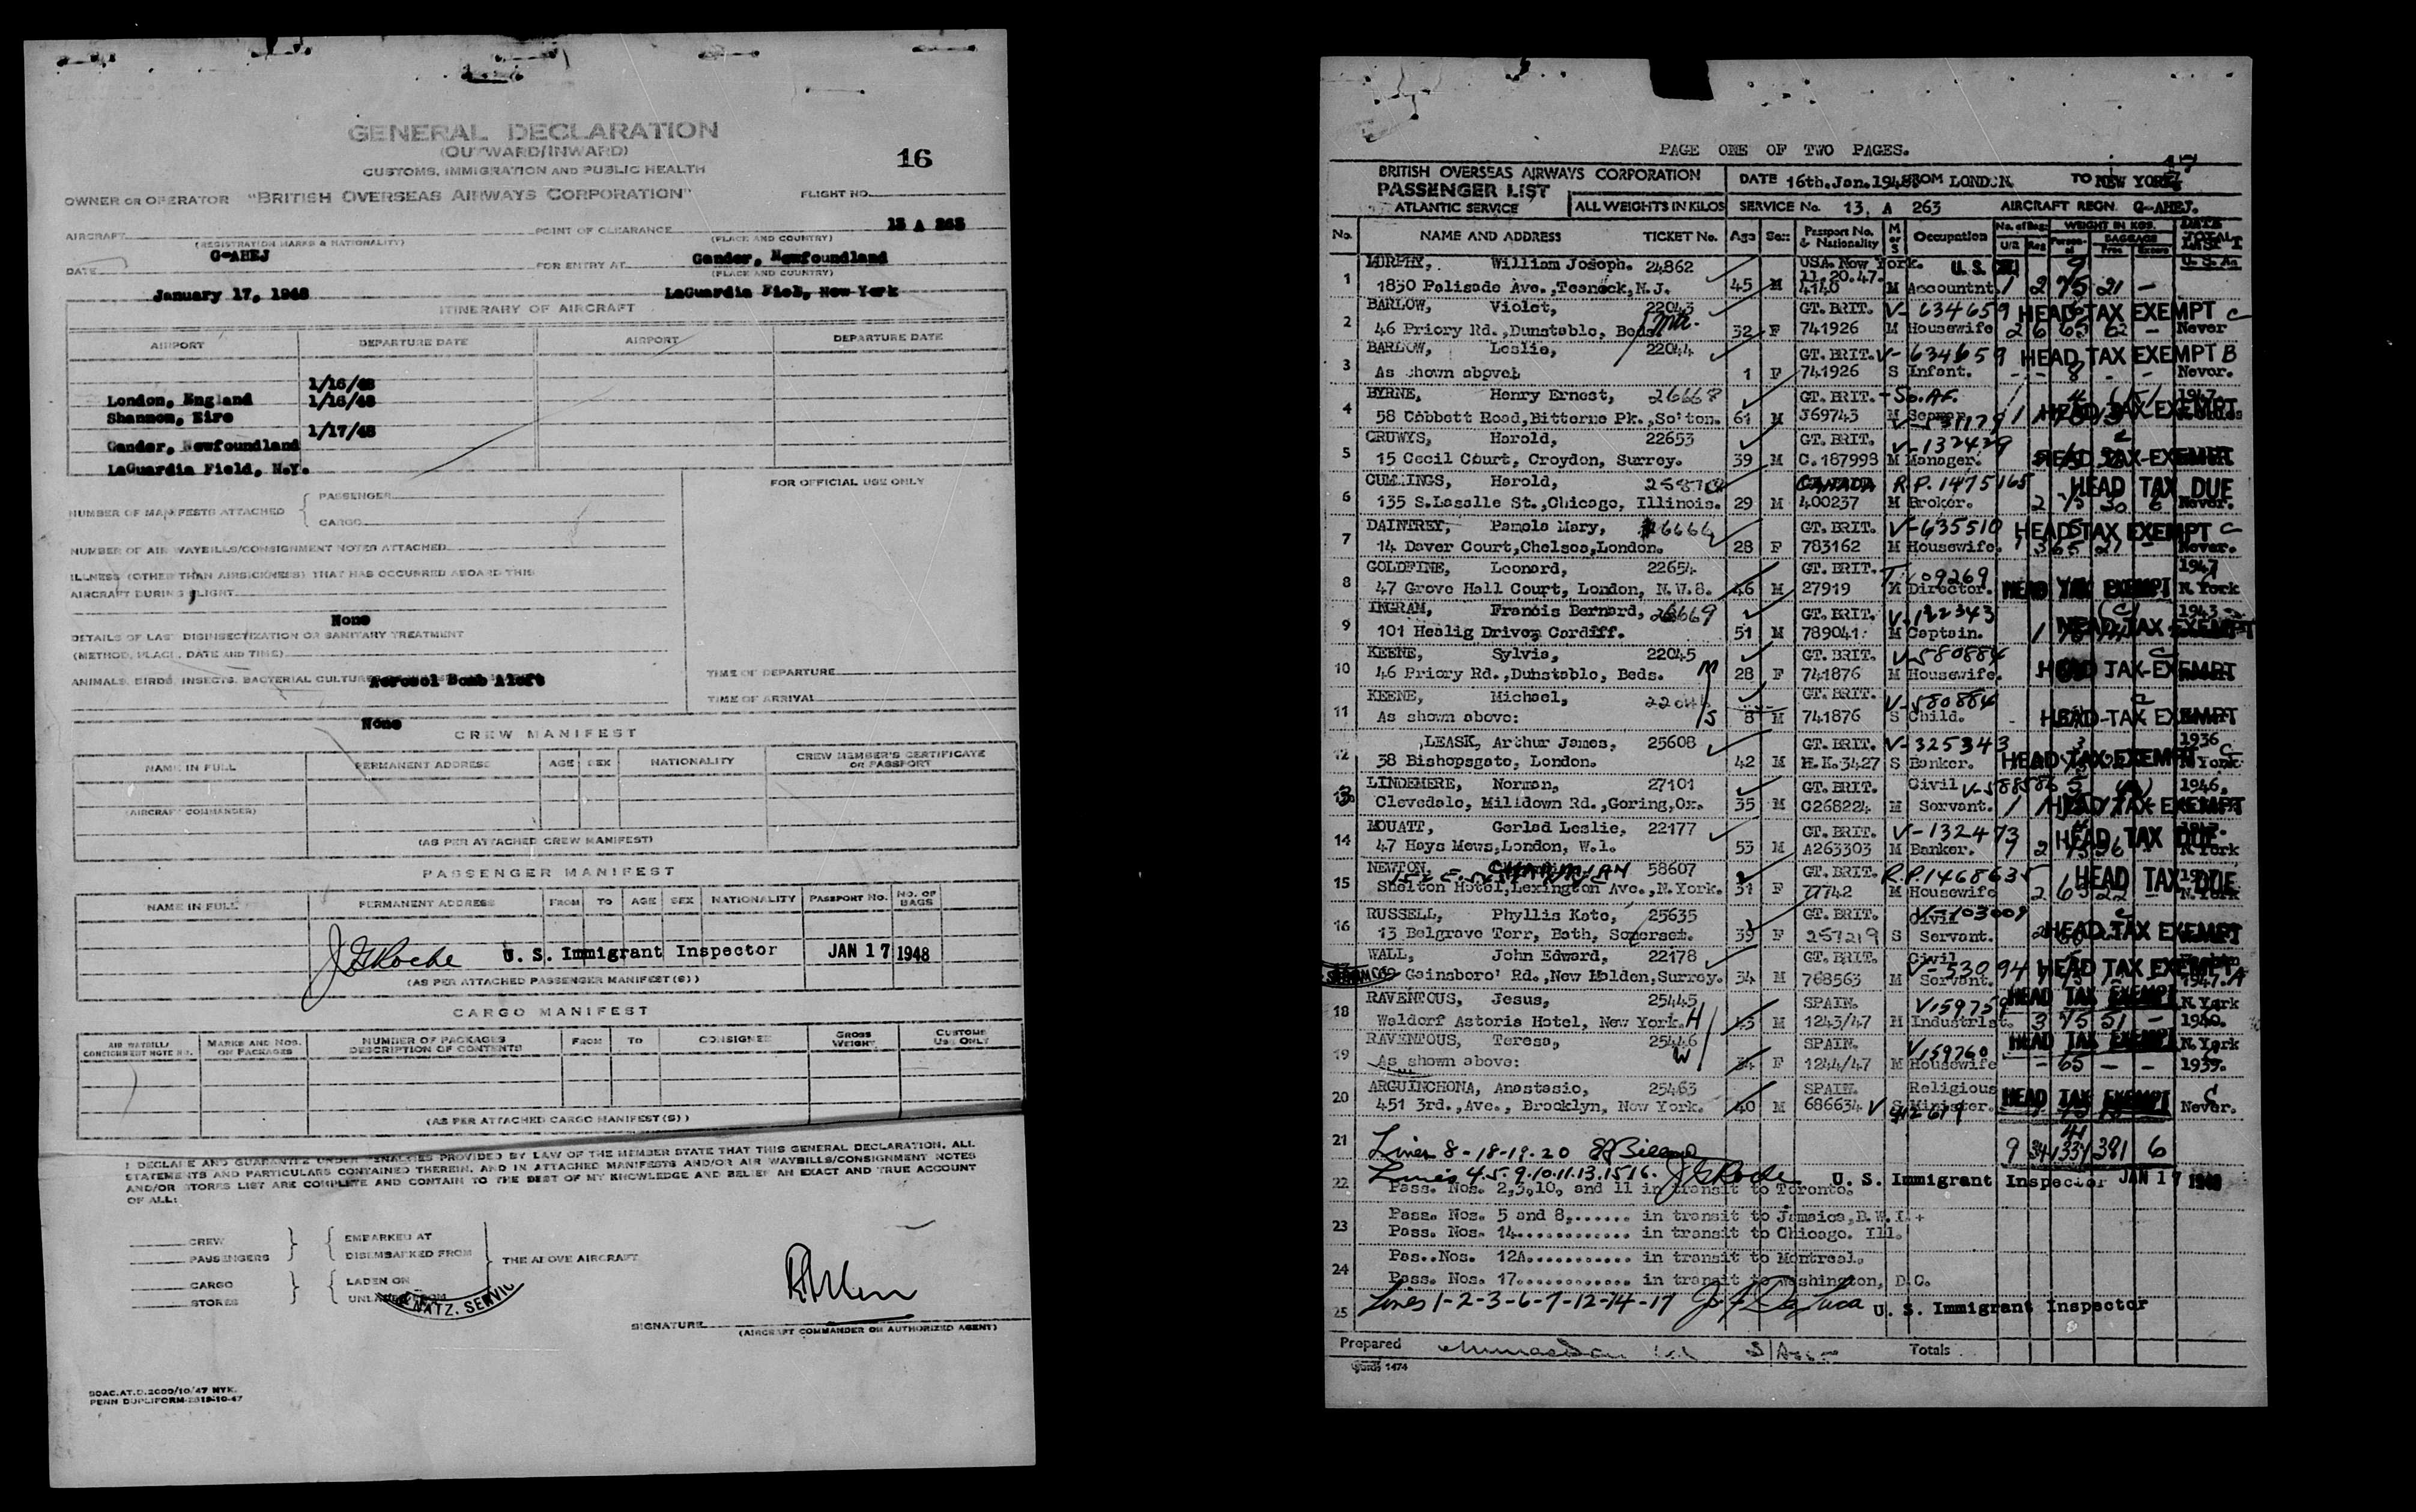 GENERAL DECLARATION
(OUTWARD/INWARD)
16
CUSTOMS, IMMIGRATION AND PUBLIC HEALTH
OWNER OR OPERATOR "BRITISH OVERSEAS AIRWAYS CORPORATION" FLIGHT NO.
AIRCRAFT POINT OF CLEARANCE 13 A 263
(REGISTRATION MARKS & NATIONALITY) (PLACE AND COUNTRY)
G-AHEJ Gander, Newfoundland
DATE FOR ENTRY AT
(PLACE AND COUNTRY)
January 17, 1948 LaGuardia Field, New York
ITINERARY OF AIRCRAFT
AIRPORT DEPARTURE DATE AIRPORT DEPARTURE DATE
1/16/48
London, England 1/16/48
Shannon, Eire
1/17/48
Gander, Newfoundland
LaGuardia Field, N.Y.
FOR OFFICIAL USE ONLY
NUMBER OF MANIFESTS ATTACHED { PASSENGER
CARGO
NUMBER OF AIR WAYBILLS/CONSIGNMENT NOTES ATTACHED
ILLNESS (OTHER THAN AIRSICKNESS) THAT HAS OCCURRED ABOARD THIS
AIRCRAFT DURING FLIGHT
None
DETAILS OF LAST DISINSECTIZATION OR SANITARY TREATMENT
(METHOD, PLACE, DATE AND TIME)
ANIMALS, BIRDS, INSECTS, BACTERIAL CULTURES Aerosol Bomb Aloft
TIME OF DEPARTURE
TIME OF ARRIVAL
None
CREW MANIFEST
NAME IN FULL PERMANENT ADDRESS AGE SEX NATIONALITY CREW MEMBER'S CERTIFICATE OR PASSPORT
(AIRCRAFT COMMANDER)
(AS PER ATTACHED CREW MANIFEST)
PASSENGER MANIFEST
NAME IN FULL PERMANENT ADDRESS FROM TO AGE SEX NATIONALITY PASSPORT NO. NO. OF BAGS
J G Roche U. S. Immigrant Inspector JAN 17 1948
(AS PER ATTACHED PASSENGER MANIFEST(S))
CARGO MANIFEST
AIR WAYBILL/CONSIGNMENT NOTE NO. MARKS AND NOS. ON PACKAGES NUMBER OF PACKAGES DESCRIPTION OF CONTENTS FROM TO CONSIGNEE GROSS WEIGHT CUSTOMS USE ONLY
(AS PER ATTACHED CARGO MANIFEST(S))
I DECLARE AND GUARANTEE UNDER PENALTIES PROVIDED BY LAW OF THE MEMBER STATE THAT THIS GENERAL DECLARATION, ALL
STATEMENTS AND PARTICULARS CONTAINED THEREIN, AND IN ATTACHED MANIFESTS AND/OR AIR WAYBILLS/CONSIGNMENT NOTES
AND/OR STORES LIST ARE COMPLETE AND CONTAIN TO THE BEST OF MY KNOWLEDGE AND BELIEF AN EXACT AND TRUE ACCOUNT
OF ALL:
CREW EMBARKED AT
PASSENGERS DISEMBARKED FROM THE ABOVE AIRCRAFT
CARGO LADEN ON
STORES UNLADEN FROM
NATZ. SERVIC
SIGNATURE
(AIRCRAFT COMMANDER OR AUTHORIZED AGENT)
BOAC.AT.D.2000/10/47 NYK.
PENN DUPLIFORM
PAGE ONE OF TWO PAGES.
BRITISH OVERSEAS AIRWAYS CORPORATION DATE 16th.Jan.1948 FROM LONDON TO NEW YORK
PASSENGER LIST
ATLANTIC SERVICE ALL WEIGHTS IN KILOS SERVICE No. 13. A 263 AIRCRAFT REGN. G-AHEJ.
No. NAME AND ADDRESS TICKET No. Age Sex Passport No. & Nationality M or S Occupation No. of Bags WEIGHT IN KGS. BAGGAGE
1 MURPHY, William Joseph. 24862 USA. New York. U.S.
11.20.47.
1830 Palisade Ave.,Teaneck,N.J. 45 M 4140 M Accountnt. 1 2 75 21 -
2 BARLOW, Violet, 22043 GT. BRIT. V-634659 HEAD TAX EXEMPT C
46 Priory Rd.,Dunstable, Beds. 32 F 741926 M Housewife 2 6 65 62 - Never
3 BARLOW, Leslie, 22044 GT.BRIT. V-634659 HEAD TAX EXEMPT B
As shown above: 1 F 741926 S Infant. Never.
4 BYRNE, Henry Ernest, 26668 GT. BRIT. -So. Af. 1947
58 Cobbett Road,Bitterne Pk.,So'ton. 61 M J69743 M Seaman HEAD TAX EXEMPT
5 CRUWYS, Harold, 22653 GT. BRIT. V-132429
15 Cecil Court, Croydon, Surrey. 39 M C.187993 M Manager. HEAD TAX EXEMPT
6 CUMMINGS, Harold, CANADA R.P. 1475165 HEAD TAX DUE
135 S.Lasalle St.,Chicago, Illinois. 29 M 400237 M Broker. 2 75 30 6 Never.
7 DAINTREY, Pamela Mary, 26664 GT. BRIT. V-635510 HEAD TAX EXEMPT C
14 Daver Court,Chelsea,London. 28 F 783162 M Housewife. Never.
8 GOLDFINE, Leonard, 22654 GT. BRIT. 1947
47 Grove Hall Court, London, N.W.8. 46 M 27919 M Director. HEAD TAX EXEMPT N. York
9 INGRAM, Francis Bernard, 26669 GT. BRIT. V-122343 1943
101 Healig Drive, Cardiff. 51 M 789041. M Captain. HEAD TAX EXEMPT
10 KEENE, Sylvia, 22045 M GT. BRIT. V-580884 C
46 Priory Rd.,Dunstable, Beds. 28 F 741876 M Housewife. HEAD TAX EXEMPT
11 KEENE, Michael, GT. BRIT. V-580884 C
As shown above: S 8 M 741876 S Child. HEAD TAX EXEMPT
12 LEASK, Arthur James, 25608 GT. BRIT. V-325343 1936
38 Bishopsgate, London. 42 M H.K.3427 S Banker. HEAD TAX EXEMPT N. York
LINDEMERE, Norman, 27101 GT. BRIT. Civil V-588586 1946.
Clevedale, Milldown Rd.,Goring,Ox. 35 M C268224 M Servant. 1 1 HEAD TAX EXEMPT
14 MOUATT, Gerlad Leslie, 22177 GT. BRIT. V-132473
47 Hays Mews,London, W.1. 53 M A263303 M Banker. HEAD TAX DUE N. York
15 NEWTON, 58607 GT. BRIT. R.P.1468635
Shelton Hotel,Lexington Ave.,N.York. 31 F 77742 M Housewife 2 65 22 - HEAD TAX DUE N. York
16 RUSSELL, Phyllis Kate, 25635 GT. BRIT. Civil V-103009
13 Belgrave Terr, Bath, Somerset. 39 F 257219 S Servant. HEAD TAX EXEMPT
WALL, John Edward, 22178 GT. BRIT. Civil
Gainsboro' Rd.,New Malden,Surrey. 34 M 768563 M Servant. HEAD TAX EXEMPT 1947. A
18 RAVENTOUS, Jesus, 25445 SPAIN. HEAD TAX EXEMPT N. York
Waldorf Astoria Hotel, New York. H 45 M 1243/47 M Industrlst. 3 75 51 - 1940.
19 RAVENTOUS, Teresa, 25446 SPAIN. V159760 HEAD TAX EXEMPT N. York
As shown above: W 34 F 1244/47 M Housewife - 65 - - 1939.
20 ARGUINCHONA, Anastasio, 25463 SPAIN. Religious
451 3rd.,Ave., Brooklyn, New York. 40 M 686634 S Minister. HEAD TAX EXEMPT Never.
21 Lines 8-18-19-20 9 34 1334 381 6
22 Lines 4.5.9.10.11.13.15 16. J G Roche U. S. Immigrant Inspector JAN 17 1948
Pass. Nos. 2,3,10, and 11 in transit to Toronto.
23 Pass. Nos. 5 and 8,...... in transit to Jamaica,B.W.I.+
Pass. Nos. 14............ in transit to Chicago. Ill.
24 Pas..Nos. 12A........... in transit to Montreal.
Pass. Nos. 17............ in transit to Washington, D.C.
25 Lines 1-2-3-6-7-12-14-17 U. S. Immigrant Inspector
Prepared Totals
Form 1474